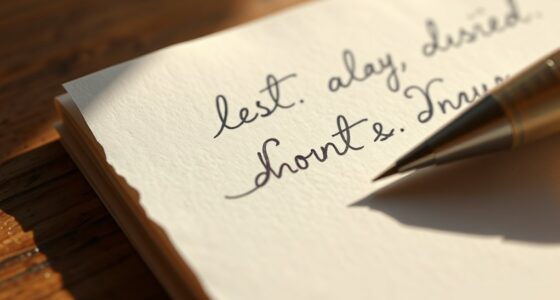 lest. alay, disied.
dhont &.